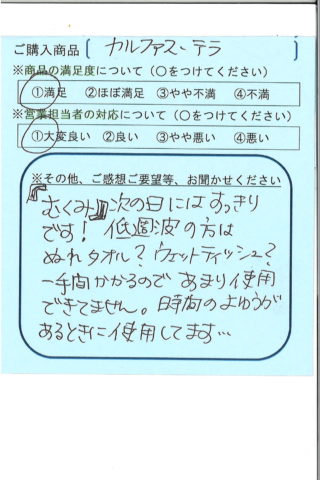 ご購入商品 [ カルファス・テラ ]
※商品の満足度について（○をつけてください）
①満足 ②ほぼ満足 ③やや不満 ④不満
※営業担当者の対応について（○をつけてください）
①大変良い ②良い ③やや悪い ④悪い
※その他、ご感想ご要望等、お聞かせください
『むくみ』次の日にはすっきり
です！ 低週波の方は
ぬれタオル？ウェットティッシュ？
一手間かかるので あまり使用
できてません。時間のよゆうが
あるときに使用してます…